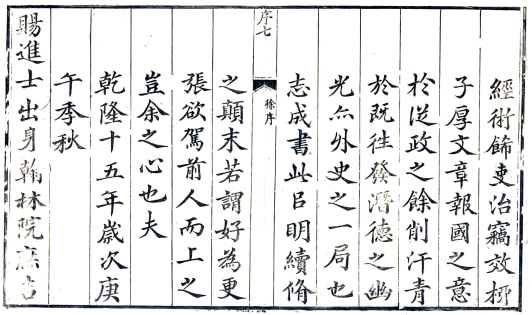 經術飾吏治竊效柳
子厚文章報國之意
扵從政之餘削汗青
扵既往發潛德之幽
光亦外史之一局也
志成書此㠯明續脩
序七
徐序
之顛末若謂好為更
張欲駕前人而上之
豈余之心也夫
乾隆十五年歲次庚
午季秋
賜進士出身翰林院庶吉